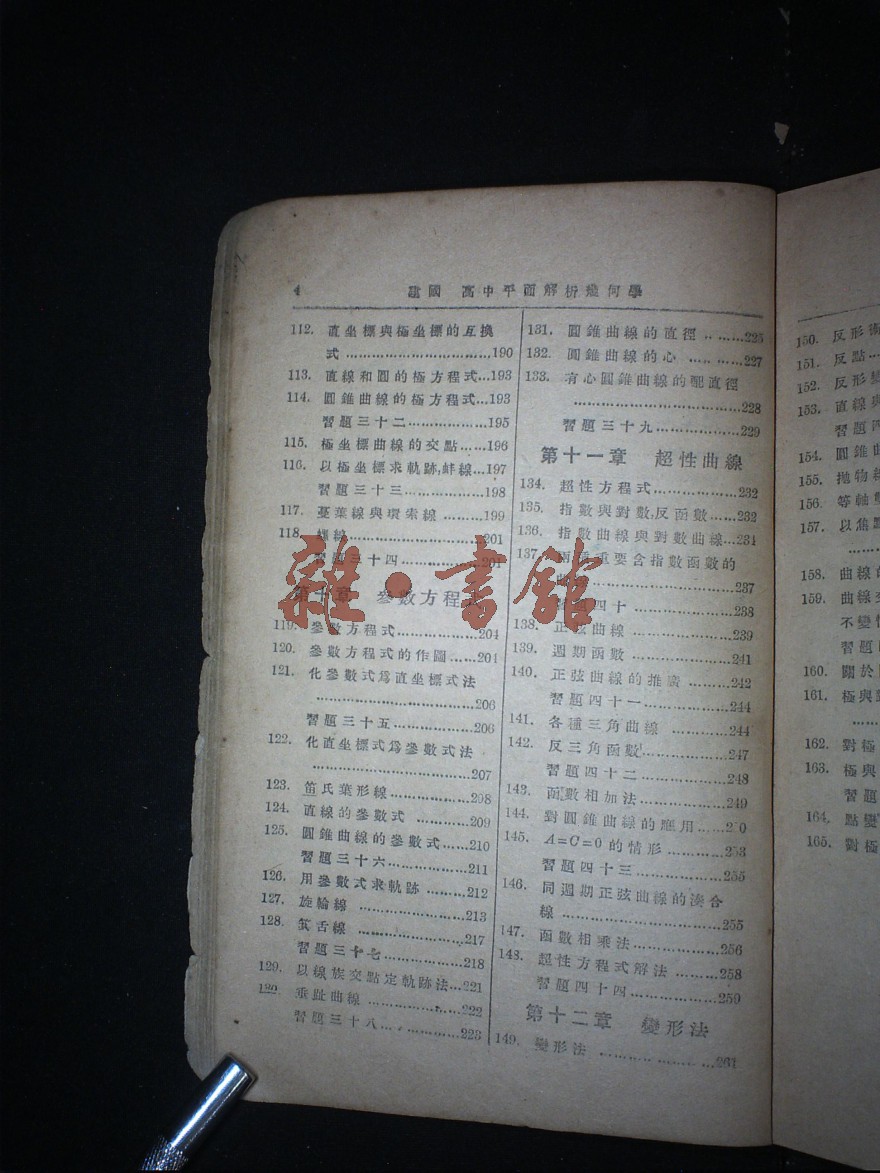 4 建國 高中平面解析幾何學
112. 直坐標與極坐標的互換
式 ................................190
113. 直線和圓的極方程式...193
114. 圓錐曲線的極方程式...193
習題三十二..................195
115. 極坐標曲線的交點......196
116. 以極坐標求軌跡,蚌線...197
習題三十三..................198
117. 蔓葉線與環索線 .........199
118. 螺線..............................201
習題三十四..................201
第十章 參數方程式
119. 參數方程式..................204
120. 參數方程式的作圖......204
121. 化參數式爲直坐標式法
....................................206
習題三十五..................206
122. 化直坐標式爲參數式法
....................................207
123. 笛氏葉形線..................208
124. 直線的參數式 ............209
125. 圓錐曲線的參數式......210
習題三十六..................211
126. 用參數式求軌跡 .........212
127. 旋輪線 ........................213
128. 箕舌線 ........................217
習題三十七..................218
129. 以線族交點定軌跡法...221
130. 垂趾曲線 .....................222
習題三十八..................223
131. 圓錐曲線的直徑 .........225
132. 圓錐曲線的心 ............227
133. 有心圓錐曲線的配直徑
....................................228
習題三十九..................229
第十一章 超性曲線
134. 超性方程式..................232
135. 指數與對數,反函數......232
136. 指數曲線與對數曲線...234
137. 兩個重要含指數函數的
....................................237
習題四十 .....................238
138. 正弦曲線 .....................239
139. 週期函數 .....................241
140. 正弦曲線的推廣 .........242
習題四十一..................244
141. 各種三角曲線 ............244
142. 反三角函數..................247
習題四十二..................248
143. 函數相加法..................249
144. 對圓錐曲線的應用......250
145. A=C=0的情形 ............253
習題四十三..................255
146. 同週期正弦曲線的湊合
線 ..............................255
147. 函數相乘法..................256
148. 超性方程式解法 .........258
習題四十四..................259
第十二章 變形法
149. 變形法 ........................261
150. 反形
151. 反點
152. 反形
153. 直線與
習題四
154. 圓錐曲
155. 拋物線
156. 等軸
157. 以焦點
158. 曲線的
159. 曲線
不變
習題
160. 關於
161. 極與
162. 對極
163. 極與
習題
164. 點變
165. 對極
雜·書館